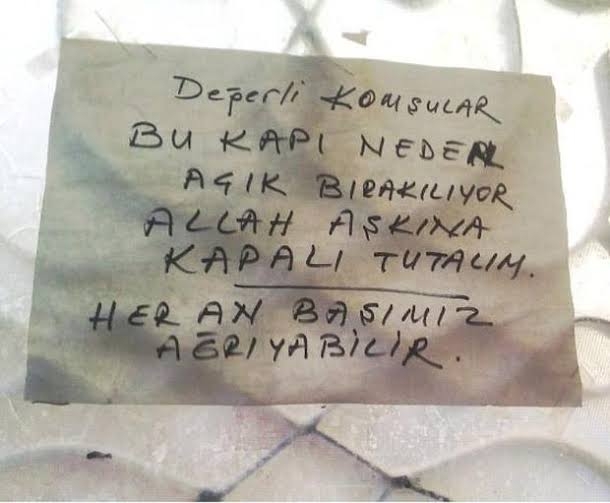 Değerli KOMŞULAR
BU KAPI NEDEN
AÇIK BIRAKILIYOR
ALLAH AŞKINA
KAPALI TUTALIM.
HER AN BAŞIMIZ
AĞRIYABİLİR.